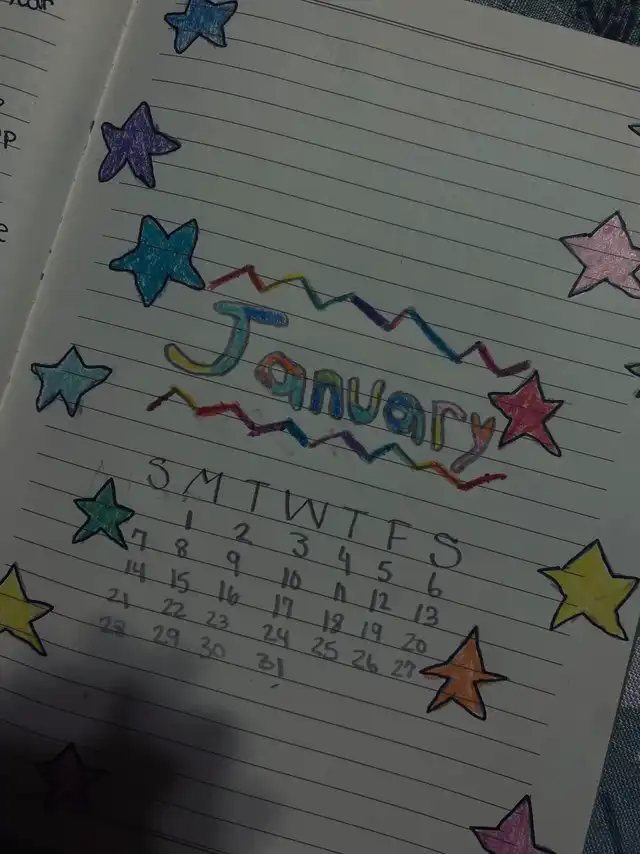 January
S M T W T F S
1 2 3 4 5 6
7 8 9 10 11 12 13
14 15 16 17 18 19 20
21 22 23 24 25 26 27
28 29 30 31